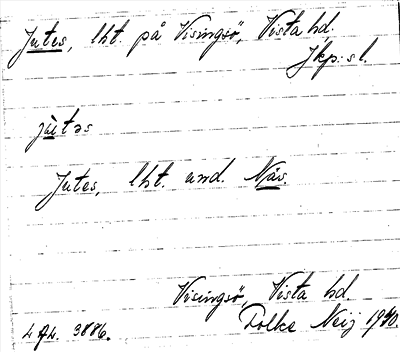 Jutes, lht. på Visingsö, Vista hd,
Jkp:s l.
jùtəs
Jutes, lht. und. Näs.
Visingsö, Vista hd.
L Af. 3886. Folke Neij 1940.